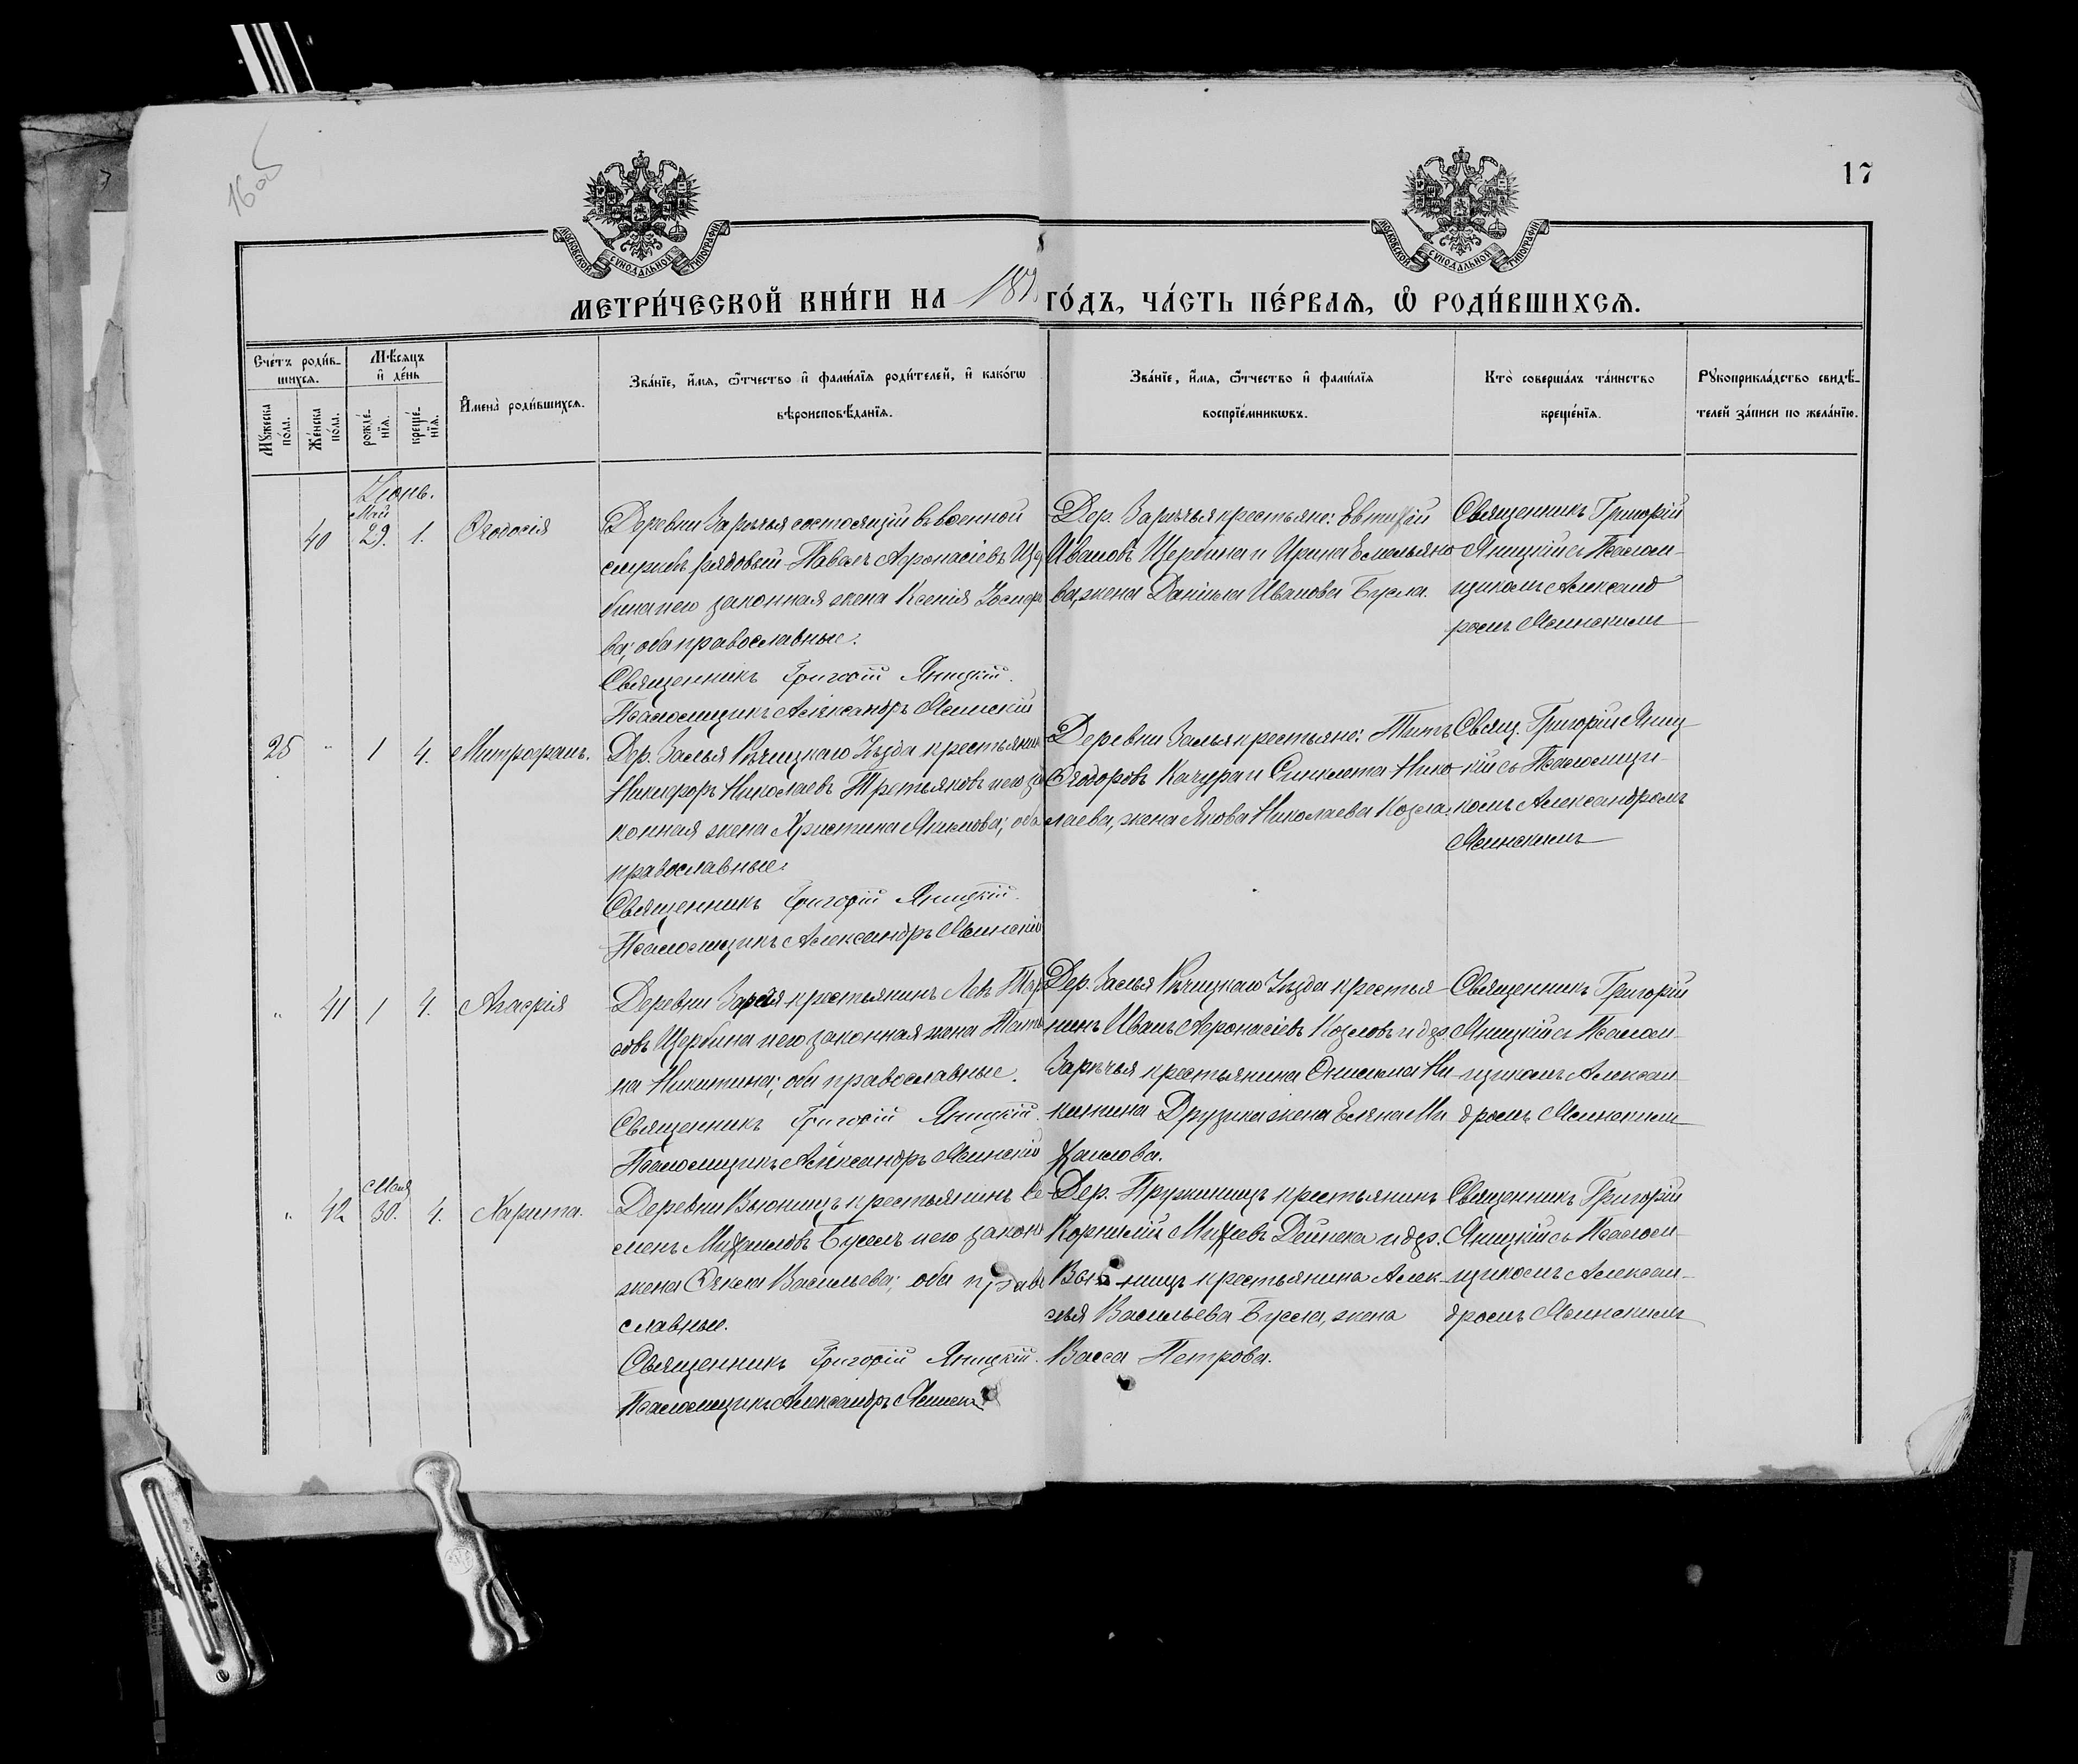 16 об
17
МОСКОВСКОЙ СѴНОДАЛЬНОЙ ТИПОГРАФІИ
МОСКОВСКОЙ СѴНОДАЛЬНОЙ ТИПОГРАФІИ
МЕТРИ́ЧЕСКОЙ КНИ́ГИ НА 189 ГО́ДЪ, ЧА́СТЬ ПЕ́РВАѦ, Ѡ҆ РОДИ́ВШИХСѦ.
Сче́тъ роди́в-
шихсѧ.
Мѣ́сѧцъ
и҆ де́нь
Мꙋ́жеска по́ла.
Же́нска по́ла.
рожде́-нїѧ.
креще́-нїѧ.
И҆мена̀ роди́вшихсѧ.
Зва́нїе, и҆́мѧ, ѻ҆́тчество и҆ фами́лїѧ роди́телей, и҆ како́гѡ
вѣроисповѣ́данїѧ.
Зва́нїе, и҆́мѧ, ѻ҆́тчество и҆ фами́лїѧ
воспрїе́мникѡвъ.
Кто̀ соверша́лъ та́инство
креще́нїѧ.
Рꙋкоприкла́дство свидѣ́-
телей за́писи по жела́нїю.
Іюнь.
Май
40 29. 1. Ѳеодосія
Деревни Зарѣчья состоящій въ военной
службѣ рядовый Павелъ Аѳонасіевъ Щер
бина и его законная жена Ксенія Іосифо
ва; оба православные.
Священникъ Григорій Яницкій.
Псаломщикъ Александръ Ясинскій
Дер. Зарѣчья крестьяне: Евтихій
Ивановъ Щербина и Ирина Емельяно
ва, жена Даніила Иванова Бусла.
Священникъ Григорій
Яницкій съ Псалом-
щикомъ Александ
ромъ Ясинскимъ
25 " 1 4. Митрофанъ.
Дер. Заелья Рѣчицкаго Уѣзда крестьянинъ
Никифоръ Николаевъ Третьяковъ и его за
конная жена Христина Якимова; оба
православные.
Священникъ Григорій Яницкій.
Псаломщикъ Александръ Ясинскій
Деревни Заелья крестьяне: Титъ
Ѳеодоровъ Качура и Синклета Нико
лаева, жена Якова Николаева Козла.
Свящ. Григорій Яниц
кій съ Псаломщи-
комъ Александромъ
Ясинскимъ
" 41 1 4. Агафія
Деревни крестьянинъ Левъ Тар
совъ Щербина и его законная жена Татья
на Никитина; оба православные.
Священникъ Григорій Яницкій.
Псаломщикъ Александръ Ясинскій
Дер. Заелья Рѣчицкаго Уѣзда крестья-
нинъ Иванъ Аѳонасіевъ Козловъ и дер.
Зарѣчья крестьянина Онисима Ни-
китина Друзика жена Елена Ми
хаилова.
Священникъ Григорій
Яницкій съ Псалом-
щикомъ Алексан-
дромъ Ясинскимъ
Мая
" 42 30. 4. Харита.
Деревни Вьюнищъ крестьянинъ Се-
менъ Михаиловъ Буселъ и его закон
жена Ѳекла Васильева; оба право
славные.
Священникъ Григорій Яницкій.
Псаломщикъ Александръ Ясинскій
Дер. Пружинищъ крестьянинъ
Корнилій Михеевъ Дейнека и дер.
Вьюнищъ крестьянина Алек-
сѣя Васильева Бусла, жена
Васса Петрова.
Священникъ Григорій
Яницкій съ Псалом-
щикомъ Алексан-
дромъ Ясинскимъ